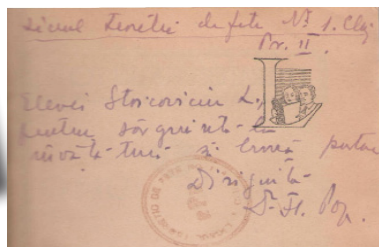 Liceul Teoretic de fete Nº 1. Cluj
Pr. II.
Elevei Stoicoviciu L,
pentru sârguința la
învăță-tură și bună purtare
Dirigintă
Fl. Pop.